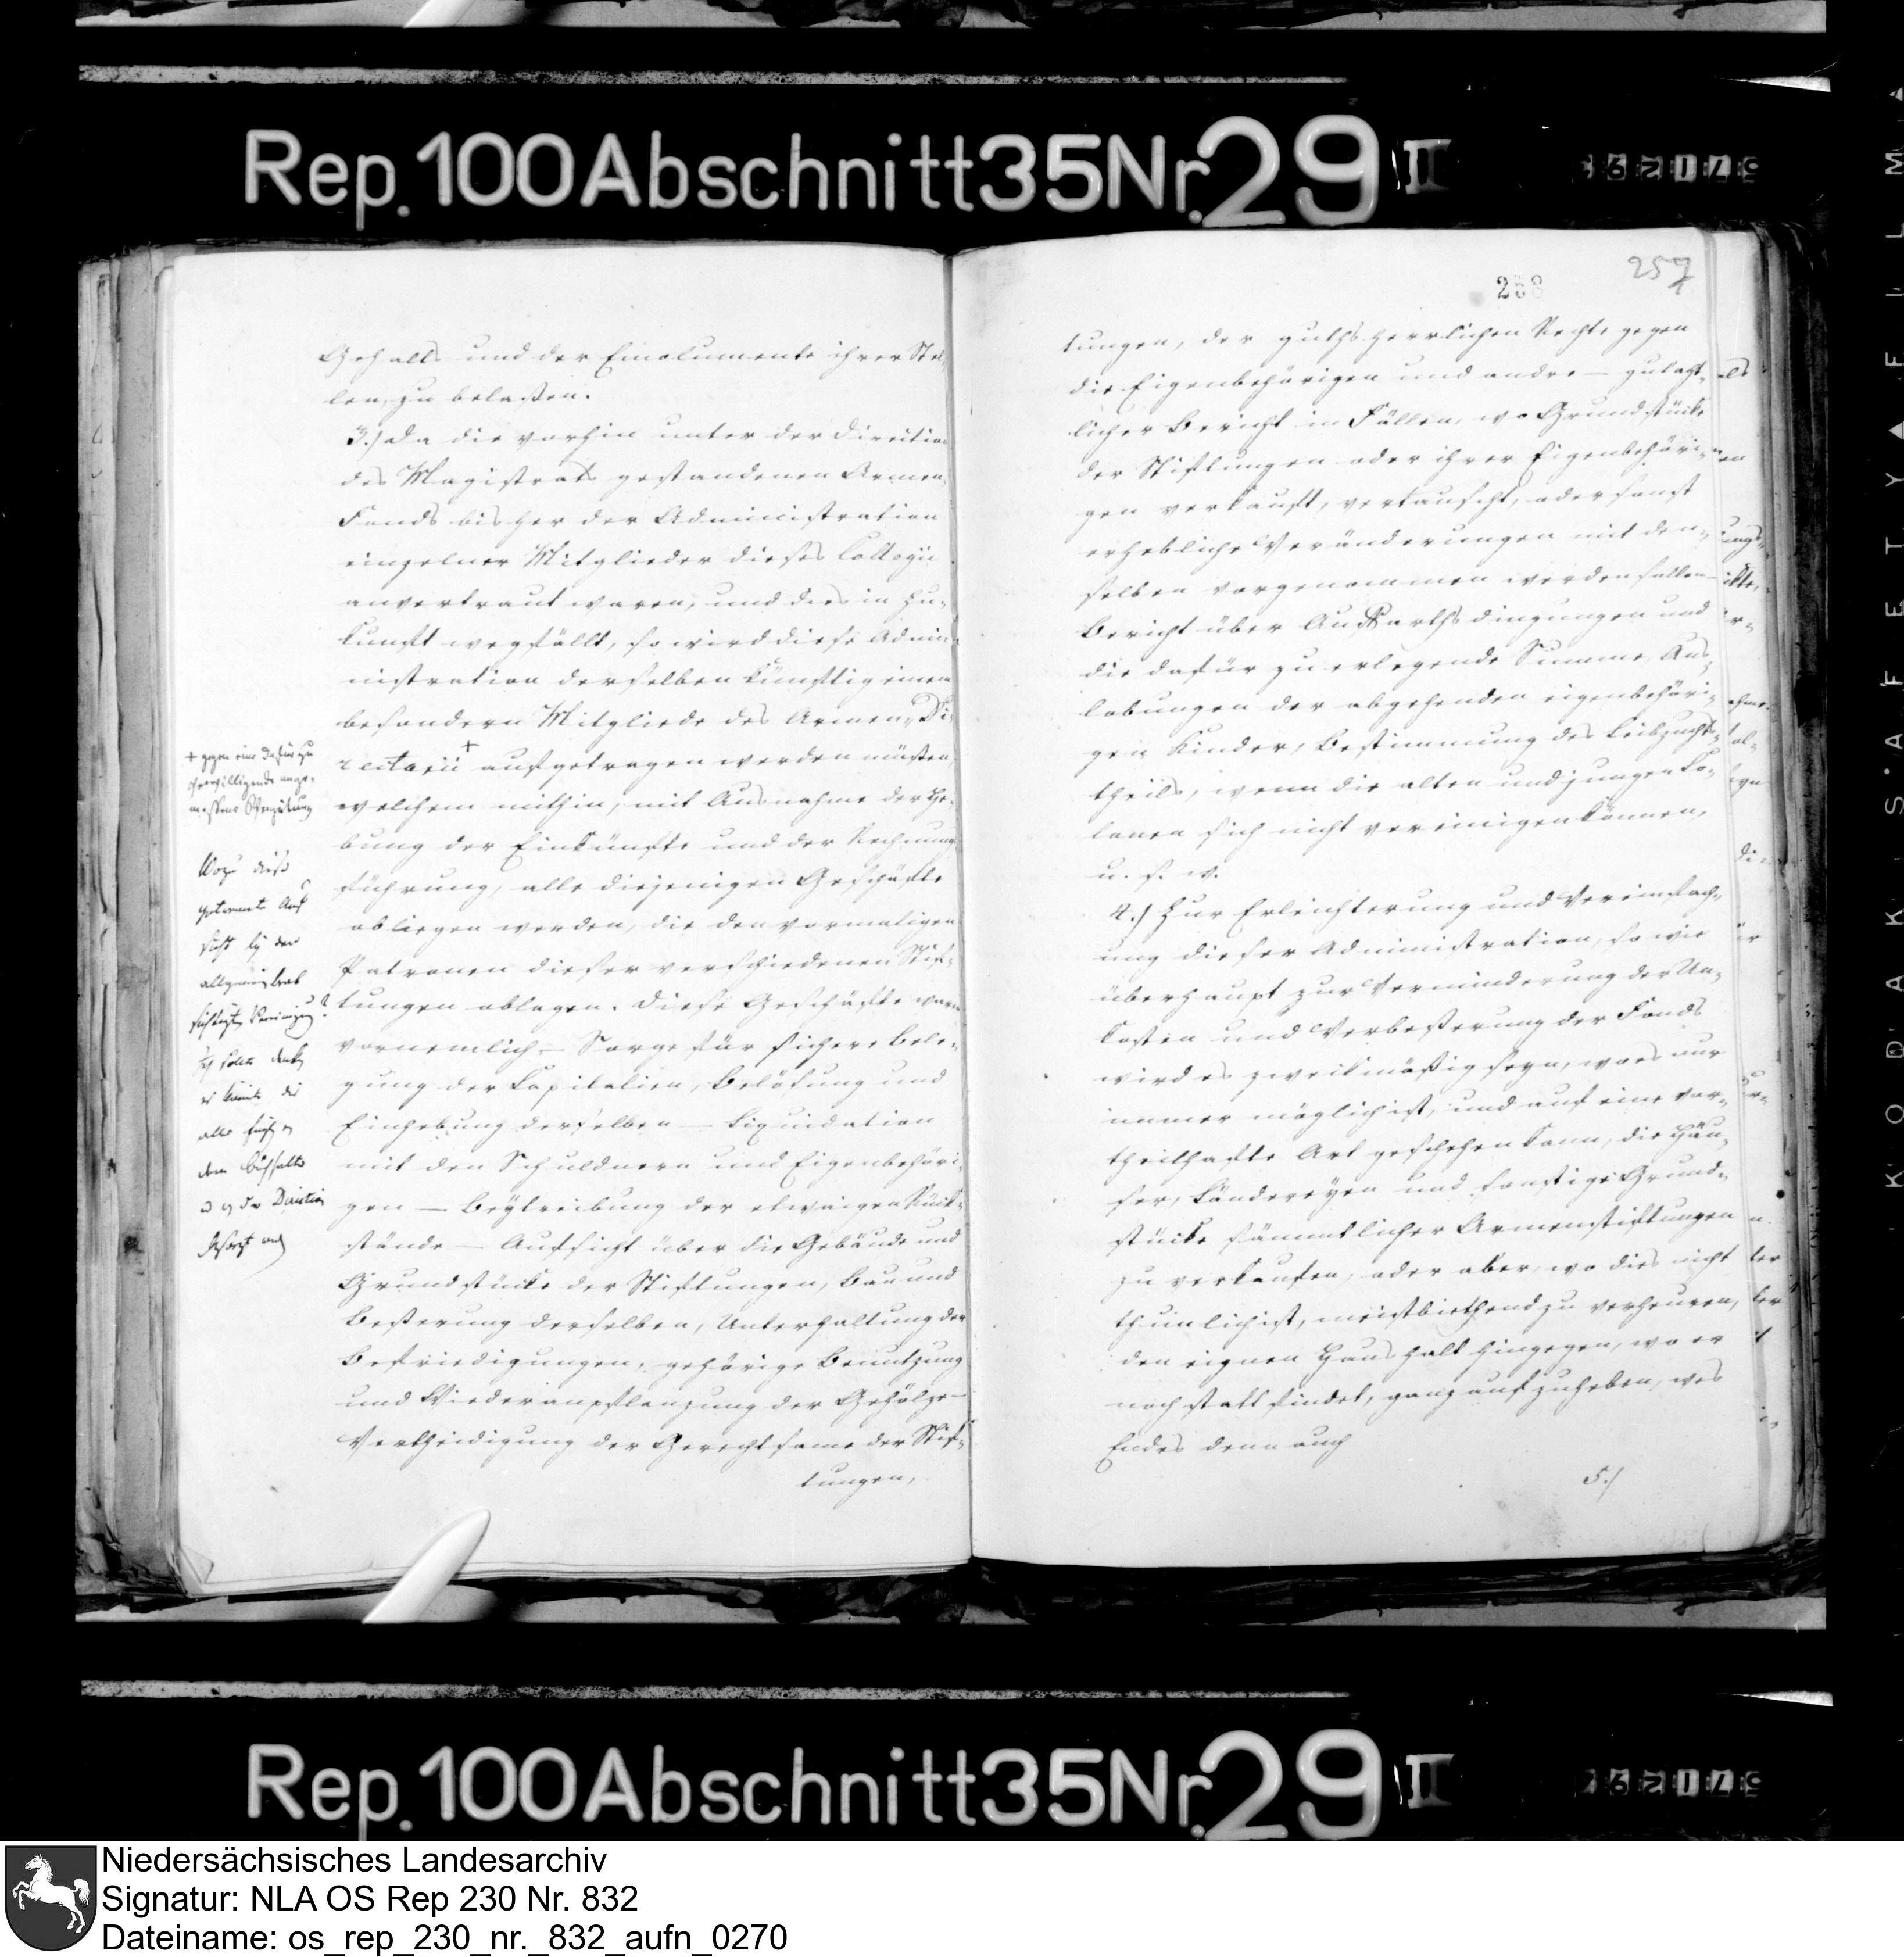 Rep. 100 Abschnitt 35 Nr. 29 II
Gehalts und der Emolumente ihrer Stel-
len, zu belasten.
3.) Da die vorhin unter der Direction
des Magistrats gestandenen Armen
Fonds bisher der Administration
einzelner Mitglieder dieses Collegii
anvertraut waren, und dies in Zu-
kunft wegfällt, so wird diese Admi-
nistration derselben künftig einem
besondern Mitgliede des Armen-Di-
rectorii + aufgetragen werden müssen,
welchem mithin, mit Ausnahme der He-
bung der Einkünfte und der Rechnungs
führung, alle diejenigen Geschäfte
obliegen werden, die den vormaligen
Patronen dieser verschiedenen Stif-
tungen oblagen. Diese Geschäfte waren
vornemlich – Sorge für sichere Bele-
gung der Kapitalien, Belösung und
Einhebung derselben – Liquidation
mit den Schuldnern und Eigenbehöri-
gen – Beytreibung der etwaigen Rück-
stände – Aufsicht über die Gebäude und
Grundstücke der Stiftungen, Bau und
Besserung derselben, Unterhaltung der
Befriedigungen, gehörige Benutzung
und Wiederanpflanzung der Gehölze –
Vertheidigung der Gerechtsame der Stif-
tungen,
+ gegen eine dafür zu
verwilligende ange-
messene Vergütung
Wozu diese
getrennte Auf
sicht bey der
allgemein
Vereinigung?
Ich sollte denken
es könnte die
alles füglich
dem Buchhalter
Direction
besorgt
257
268
tungen, der guthsherrlichen Rechte gegen
die Eigenbehörigen und andre – gutacht-
licher Bericht in Fällen, wo Grundstücke
der Stiftungen oder ihrer Eigenbehöri-
gen verkauft, vertauscht, oder sonst
erhebliche Veränderungen mit den-
selben vorgenommen werden sollen –
Bericht über Auffarthsdingungen und
die dafür zu erlegende Summe, Aus-
lobungen der abgehenden eigenbehöri-
gen Kinder, Bestimmung des Leibzuchts-
theils, wenn die alten und jungen Co-
lonen sich nicht vereinigen können,
u. s. w.
4.) Zur Erleichterung und Vereinfach-
ung dieser Administration, so wie
überhaupt zur Verminderung der Un-
kosten und Verbesserung der Fonds
wird es zweckmäßig seyn, wo es nur
immer möglich ist, und auf eine vor-
theilhafte Art geschehen kann, die Häu-
ser, Ländereyen und sonstige Grund-
stücke sämmtlicher Armenstiftungen
zu verkaufen, oder aber, wo dies nicht
thunlich ist, meistbiethend zu verheuren,
den eignen Haushalt hingegen, wo er
noch statt findet, ganz aufzuheben, wes
Endes denn auch
5.)
Rep. 100 Abschnitt 35 Nr. 29 II
KODAK SAFETY FILM
Niedersächsisches Landesarchiv
Signatur: NLA OS Rep 230 Nr. 832
Dateiname: os_rep_230_nr._832_aufn_0270